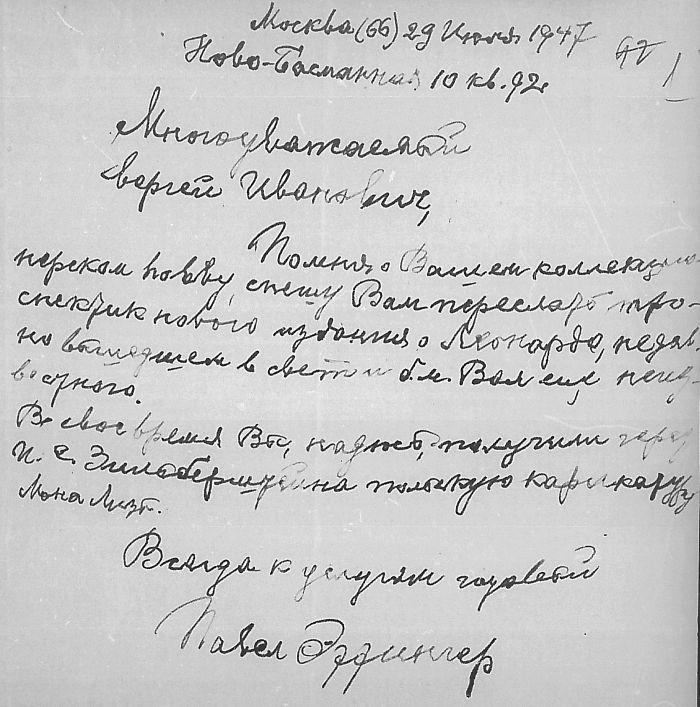 Москва (66) 29 Июля 1947
Ново-Басманная 10 кв. 92.
47 1
Многоуважаемый
Сергей Иванович,
Помня о Вашем коллекцио-
нерском спешу Вам переслать про-
спектик нового издания о Леонардо, недав-
но вышедшем в свет и б.м. Вам еще неиз
вестного.
В свое время Вы, надеюсь, получили через
И. С. Зильберштейна польскую карикатуру
Мона Лизы.
Всегда к услугам готовый
Павел Эттингер